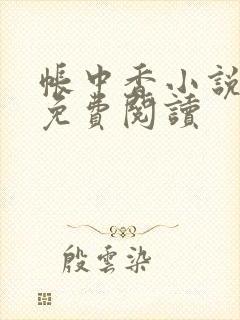 帳中香小說
免費閱讀
殷雲染